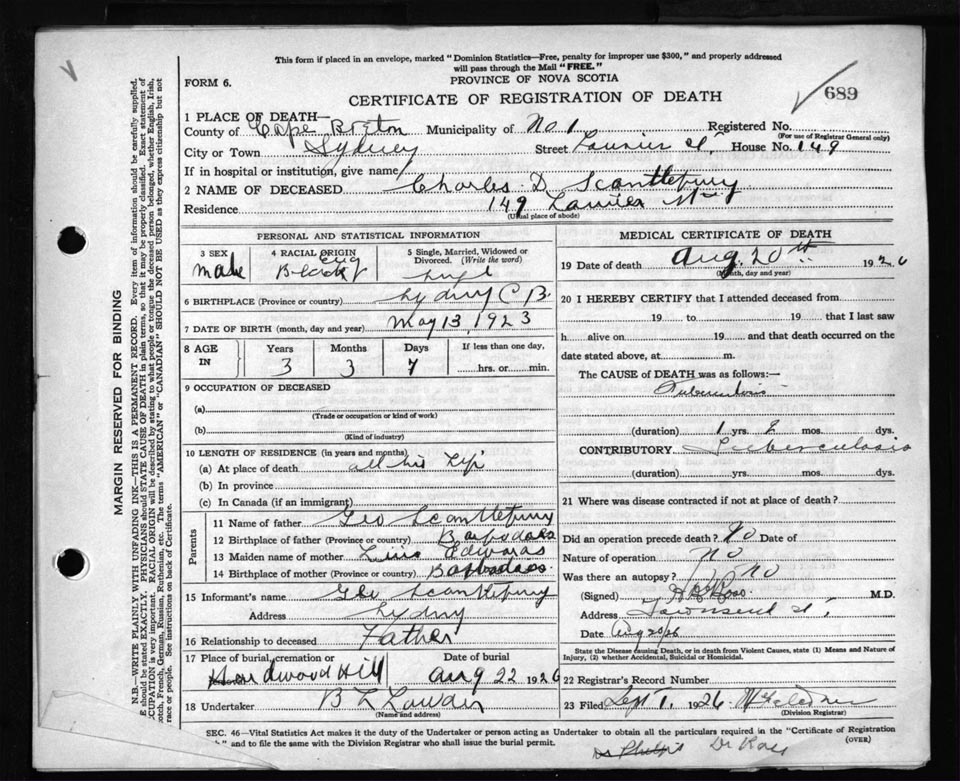 This form if placed in an envelope, marked "Dominion Statistics—Free, penalty for improper use $300," and properly addressed
will pass through the Mail "FREE."
FORM 6.
PROVINCE OF NOVA SCOTIA
CERTIFICATE OF REGISTRATION OF DEATH
689
1 PLACE OF DEATH—
County of Cape Breton Municipality of No 1 Registered No.
(For use of Registrar General only)
City or Town Sydney Street Laurier St, House No. 149
If in hospital or institution, give name
2 NAME OF DECEASED Charles D Scantlebury
Residence 149 Laurier
(Usual place of abode)
PERSONAL AND STATISTICAL INFORMATION
3 SEX
male
4 RACIAL ORIGIN
Black
5 Single, Married, Widowed or
Divorced. (Write the word)
Singl
6 BIRTHPLACE (Province or country) Sydney C B.
7 DATE OF BIRTH (month, day and year) May 13, 1923
8 AGE
IN
Years
3
Months
3
Days
7
If less than one day,
hrs. or min.
9 OCCUPATION OF DECEASED
(a)
(Trade or occupation or kind of work)
(b)
(Kind of industry)
10 LENGTH OF RESIDENCE (in years and months)
(a) At place of death all his Life
(b) In province
(c) In Canada (if an immigrant)
Parents
11 Name of father Geo Scantlebury
12 Birthplace of father (Province or country) Barbados
13 Maiden name of mother Edwards
14 Birthplace of mother (Province or country) Barbados
15 Informant's name Geo Scantlebury
Address Sydney
16 Relationship to deceased Father
17 Place of burial, cremation or
Hardwood Hill
Date of burial
Aug 22 1926
18 Undertaker
(Name and address)
MEDICAL CERTIFICATE OF DEATH
19 Date of death Aug. 20th 1926
(Month, day and year)
20 I HEREBY CERTIFY that I attended deceased from
19 to 19 that I last saw
h alive on 19 and that death occurred on the
date stated above, at m.
The CAUSE of DEATH was as follows:—
Tuberculosis
(duration) 1 yrs. mos. dys.
CONTRIBUTORY Tuberculosis
(duration) yrs. mos. dys.
21 Where was disease contracted if not at place of death?
Did an operation precede death? No Date of
Nature of operation No
Was there an autopsy? No
(Signed) Ross M.D.
Address Townsend St,
Date Aug 20/26
State the Disease causing Death, or in death from Violent Causes, state (1) Means and Nature of
Injury, (2) whether Accidental, Suicidal or Homicidal.
22 Registrar's Record Number
23 Filed Sept 1, 1926
(Division Registrar)
SEC. 46—Vital Statistics Act makes it the duty of the Undertaker or person acting as Undertaker to obtain all the particulars required in the "Certificate of Registration
and to file the same with the Division Registrar who shall issue the burial permit.
(OVER)
Dr Ross
MARGIN RESERVED FOR BINDING
N.B.—WRITE PLAINLY WITH UNFADING INK—THIS IS A PERMANENT RECORD. Every item of information should be carefully supplied.
should be stated EXACTLY. PHYSICIANS should STATE CAUSE OF DEATH in plain terms, so that it may be properly classified. Exact statement of
CUPATION is very important. RACIAL ORIGIN will be described by stating to what people or tongue the deceased person belonged, whether English, Irish,
French, German, Russian, Ruthenian, etc. The terms "AMERICAN" or "CANADIAN" SHOULD NOT BE USED as they express citizenship but not
race or people. See instructions on back of Certificate.